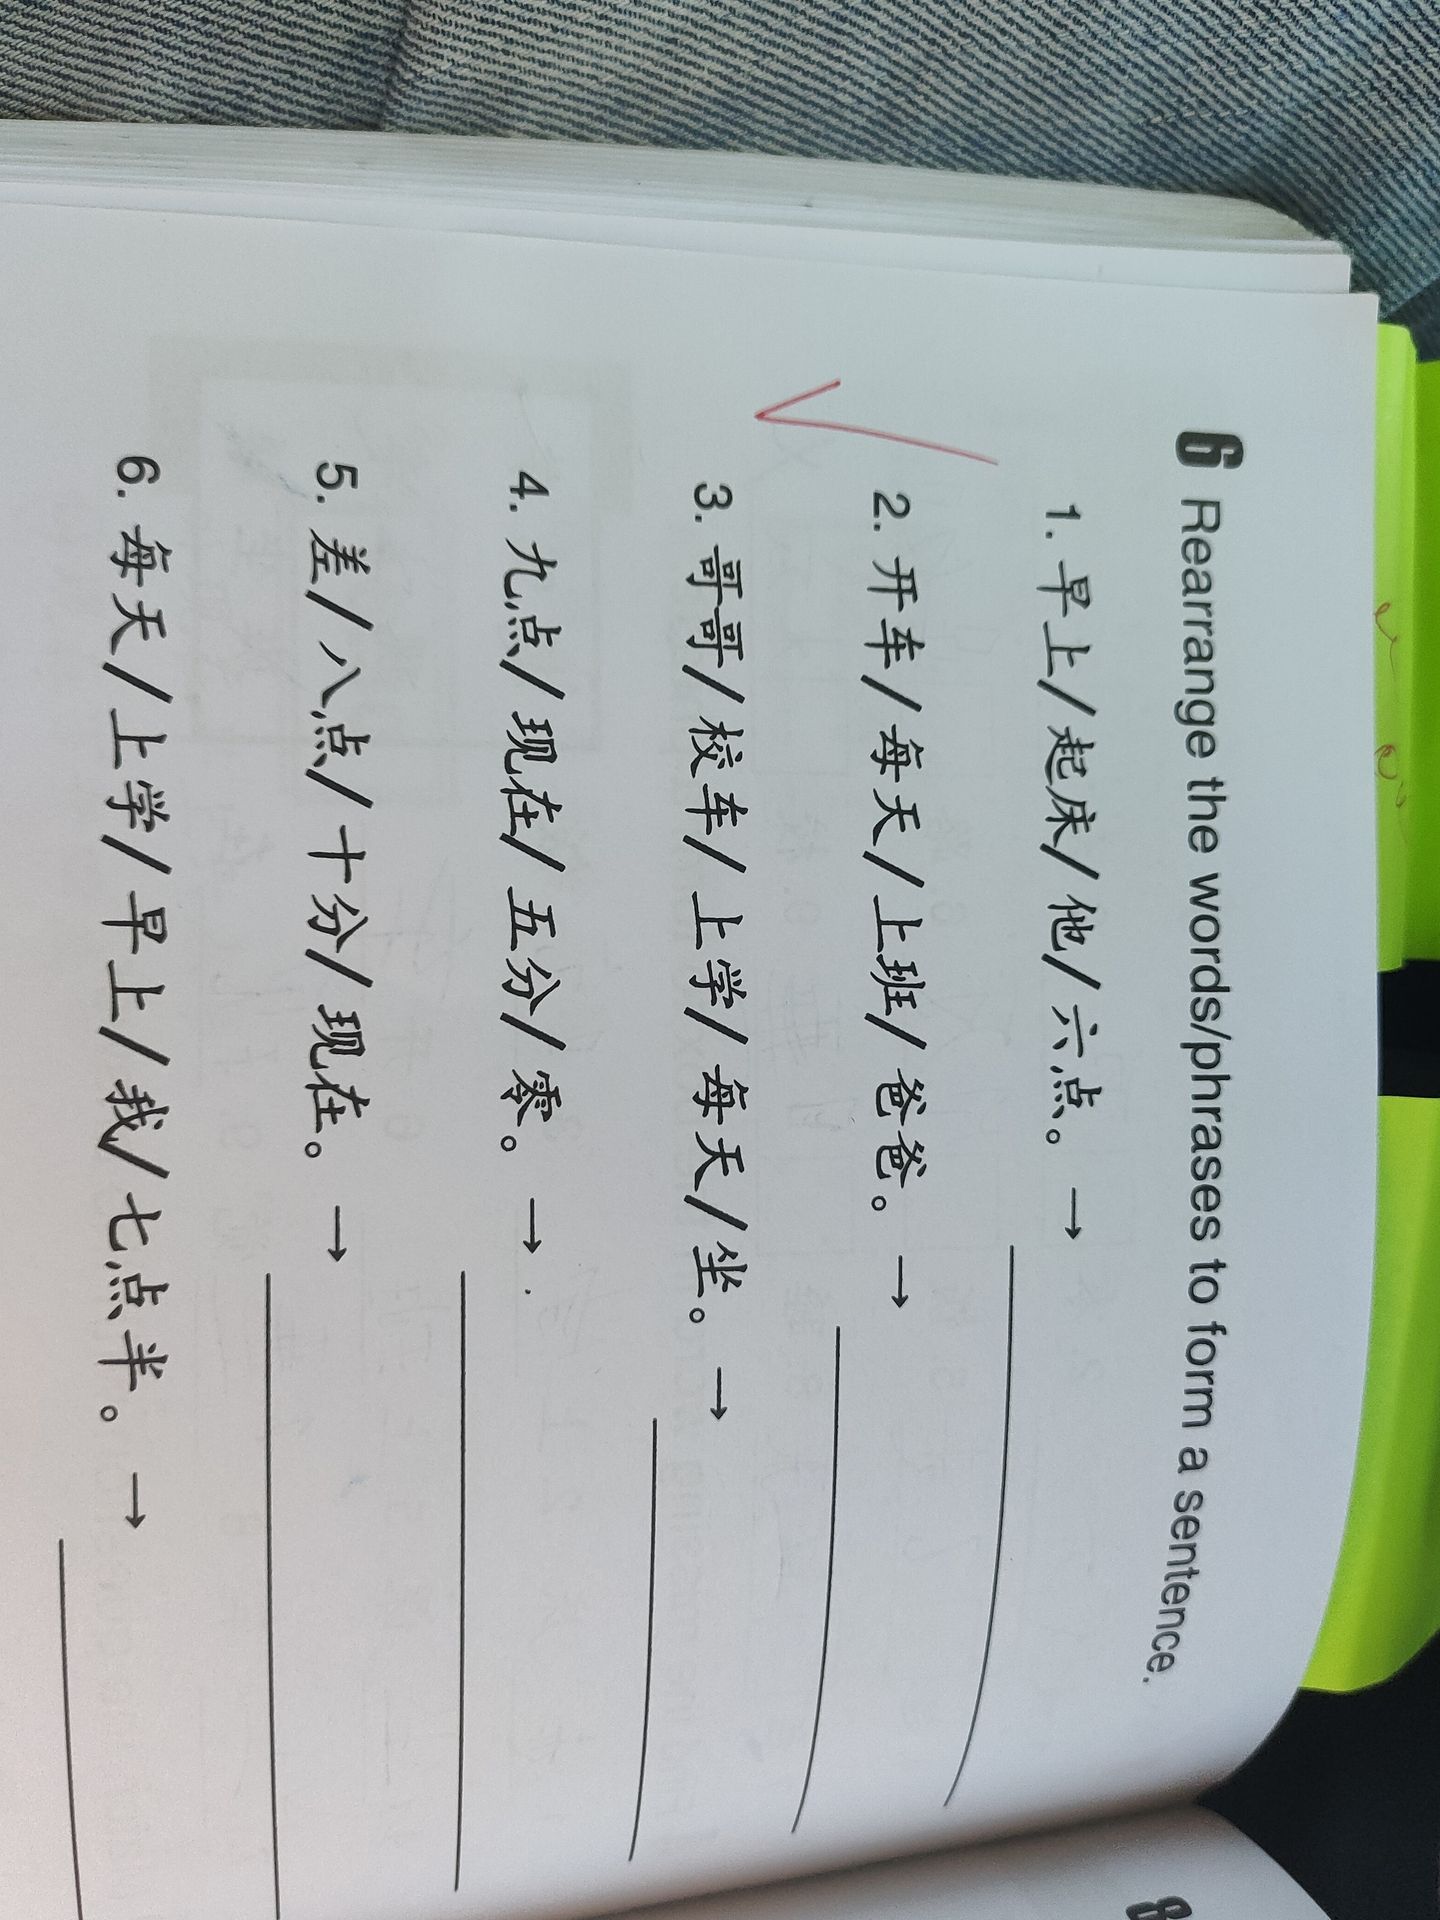 6 Rearrange the words/phrases to form a sentence.
1. 早上/起床/他/六点。 →
2. 开车/每天/上班/爸爸。 →
3. 哥哥/校车/上学/每天/坐。 →
4. 九点/现在/五分/零。 →
5. 差/八点/十分/现在。 →
6. 每天/上学/早上/我/七点半。 →
8